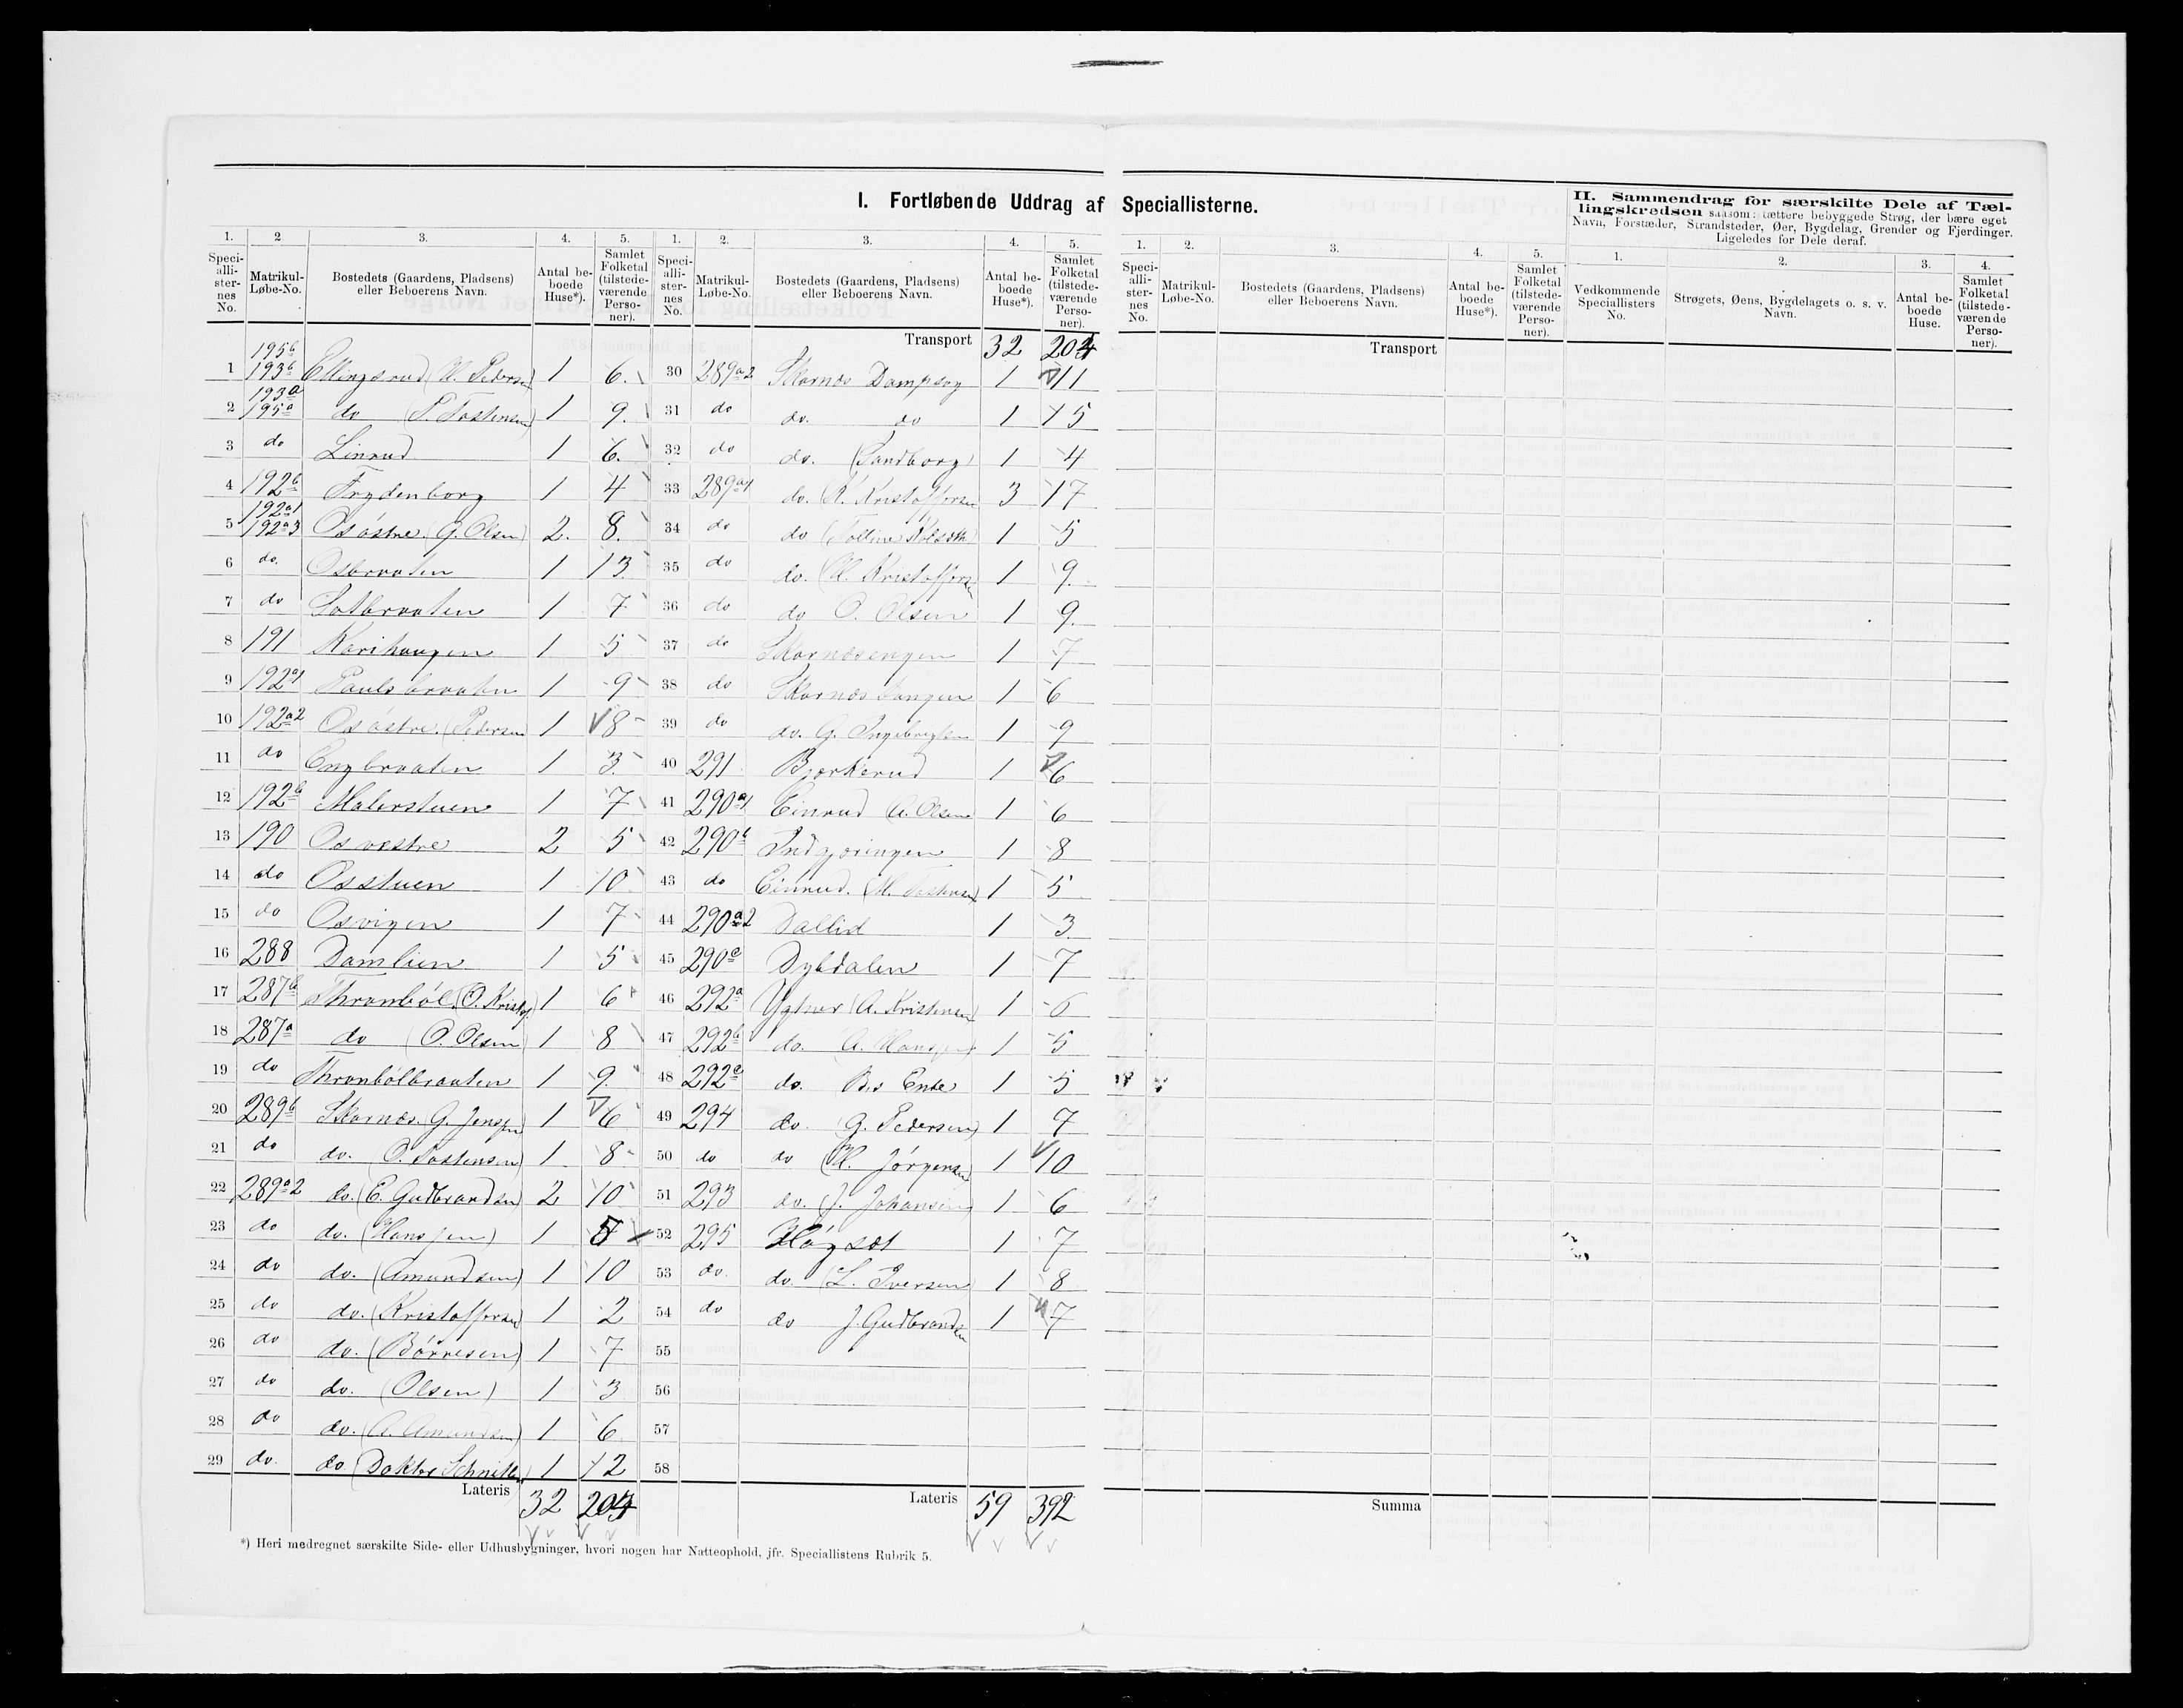 I. Fortløbende Uddrag af Speciallisterne.
II. Sammendrag for særskilte Dele af Tæl-
lingskredsen saasom: tættere bebyggede Strøg, der bære eget
Navn, Forstæder, Strandsteder, Øer, Bygdelag, Grender og Fjerdinger.
Ligeledes for Dele deraf.
1. 2 3. 4. 5.
Speci-alli-ster-nes No. Matrikul-Løbe-No. Bostedets (Gaardens, Pladsens) eller Beboerens Navn. Antal be-boede Huse*). Samlet Folketal (tilstede-værende Perso-ner).
195b
1 193b Ellingsrud (H. Pedersen) 1 6.
193a
2 195a do (P. Tostensen) 1 9.
3 do Linrud 1 6.
4 192b Frydenborg 1 4
192a1
5 192a3 Os østre (G. Olsen) 2. 8.
6 do. Osbraaten 1 13
7 do Sotbraaten 1 7
8 191 Karihaugen 1 5
9 192a1 Paulsbraaten 1 9
10 192a2 Os østre (Pedersen 1 8
11 do Engbraaten 1 3.
12 192b Malerstuen 1 7
13 190 Os vestre 2 5
14 do Osstuen 1 10
15 do Osvigen 1 7
16 288 Damlien 1 5
17 287b Thronbøl (O. Kristof. 1 6
18 287a do (O. Olsen) 1 8
19 do Thronbølbraaten 1 9.
20 289b Skarnæs (G. Jenssen) 1 6
21 do do. (O. Tostensen) 1 8
22 289a2 do. (E. Gudbrandsen) 2 10
23 do do. (Hanssen) 1
24 do do. (Amundsen) 1 10
25 do do. (Kristoffersen) 1 2
26 do do. (Børresen) 1 7
27 do do. (Olsen) 1 3
28 do do. (A. Amundsen) 1 6
29 do. do (Doktor Schnitler) 1 12
Lateris 32 204
1. 2. 3. 4. 5.
Speci-alli-ster-nes No. Matrikul-Løbe-No. Bostedets (Gaardens, Pladsens) eller Beboerens Navn. Antal be-boede Huse*). Samlet Folketal (tilstede-værende Perso-ner).
Transport 32 204
30 289a2 Skarnæs Dampsag 1 11
31 do do. do 1 15
32 do do. (Sandborg) 1 4
33 289a1 do. (K. Kristoffersen 3 17
34 do do 1 5
35 do do. (H. Kristoffersen 1 9.
36 do do O. Olsen 1 9.
37 do Skarnæsengen 1 7
38 do Skarnæstangen 1 6
39 do do. G. Ingebrigtsen 1 9
40 291 Bjørkerud 1 6
41 290a1 Einrud (A. Olsen 1 6
42 290b Indgjøringen 1 8
43 do Einrud. (H. Tostensen) 1 5
44 290a2 Dallid 1 3
45 290c Dybdalen 1 7
46 292a (A. Kristensen) 1 6
47 292b do. (A. Hanssen) 1 5
48 292c do. Bs Enke 1 5
49 294 do. (G. Pedersen) 1 7
50 do do (H. Jørgensen) 1 10
51 293 do. (J. Johansen) 1 6
52 295 Høgsæt 1 7
53 do. do. (L. Iversen) 1 8
54 do do J. Gudbrandsen 1 7
55
56
57
58
Lateris 59 392
1. 2. 3. 4. 5.
Speci-alli-ster-nes No. Matrikul-Løbe-No. Bostedets (Gaardens, Pladsens) eller Beboerens Navn. Antal be-boede Huse*). Samlet Folketal (tilstede-værende Perso-ner).
Transport
Summa
1. 2. 3. 4.
Vedkommende Speciallisters No. Strøgets, Øens, Bygdelagets o. s. v. Navn. Antal be-boede Huse. Samlet Folketal (tilstede-værende Perso-ner).
*) Heri medregnet særskilte Side- eller Udhusbygninger, hvori nogen har Natteophold, jfr. Speciallistens Rubrik 5.